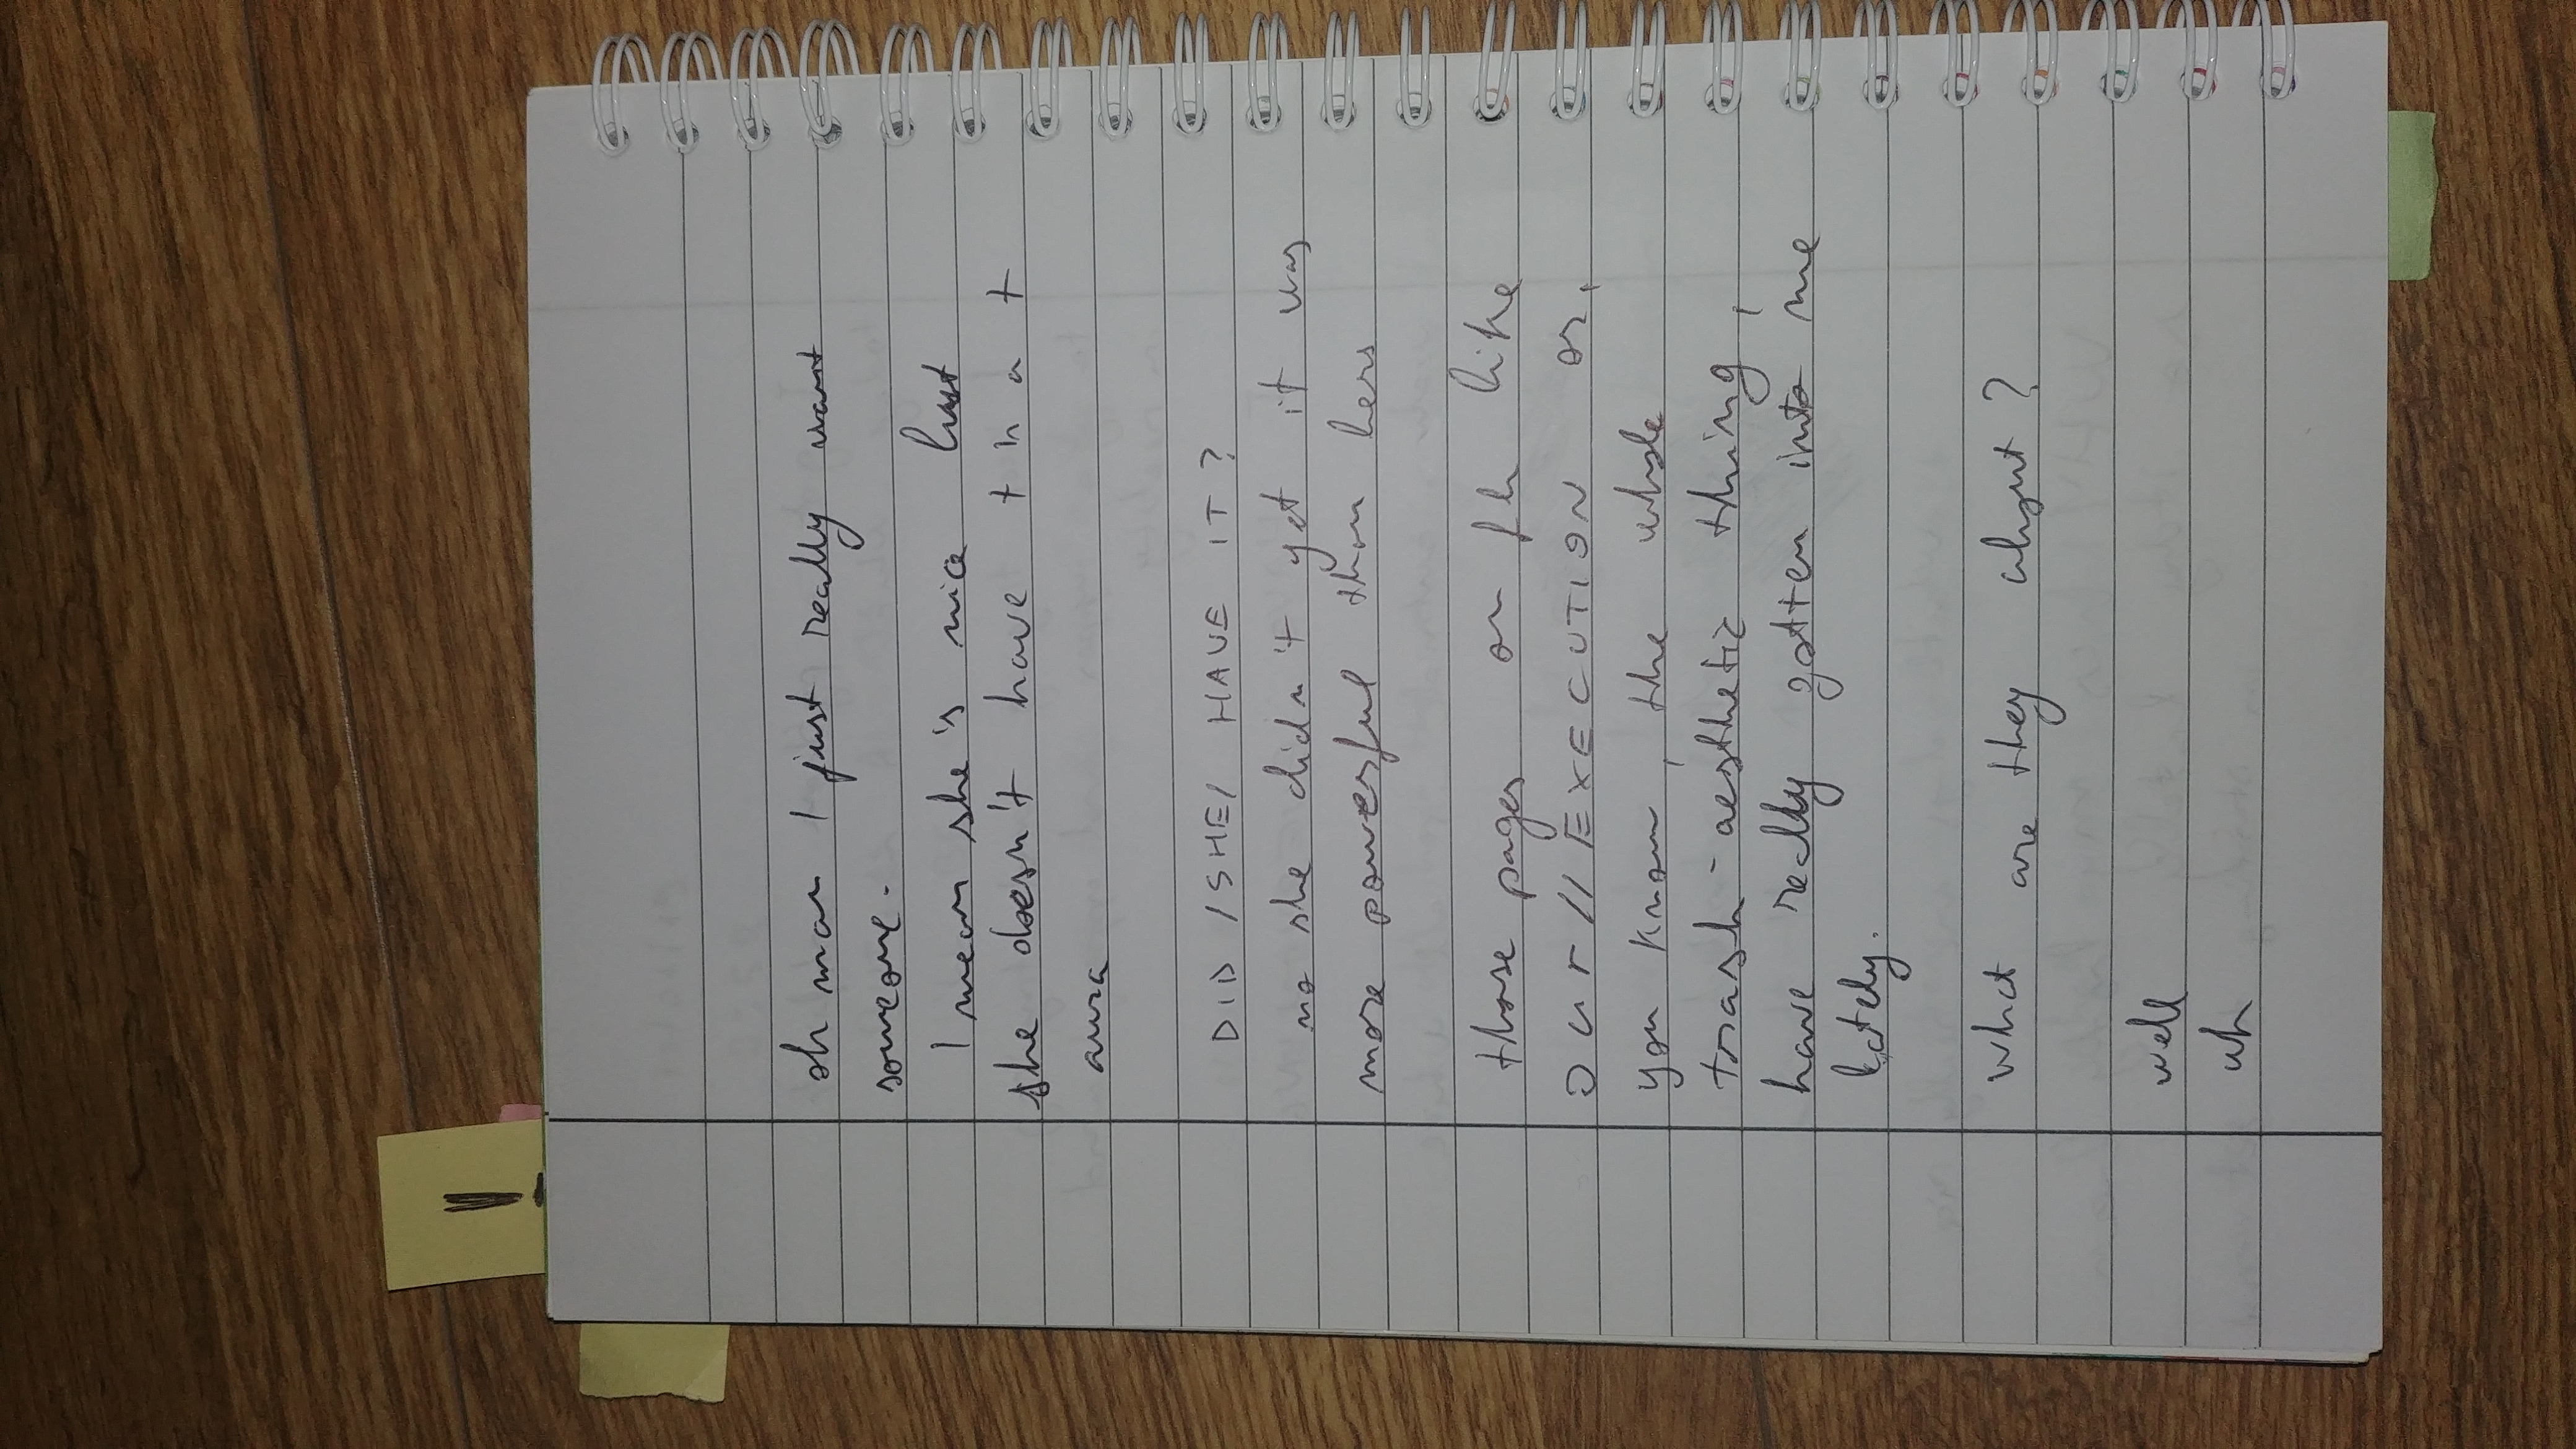 !
oh man I just really want
someone.
I mean she's nice but
she doesn't have t h a t
aura
DID /SHE/ HAVE IT?
no she didn't yet it was
more powerful than hers
those pages on fb like
our // EXECUTION or,
you know, the whole
trash-aesthetic thing,
have really gotten into me
lately.
What are they about?
well
uh